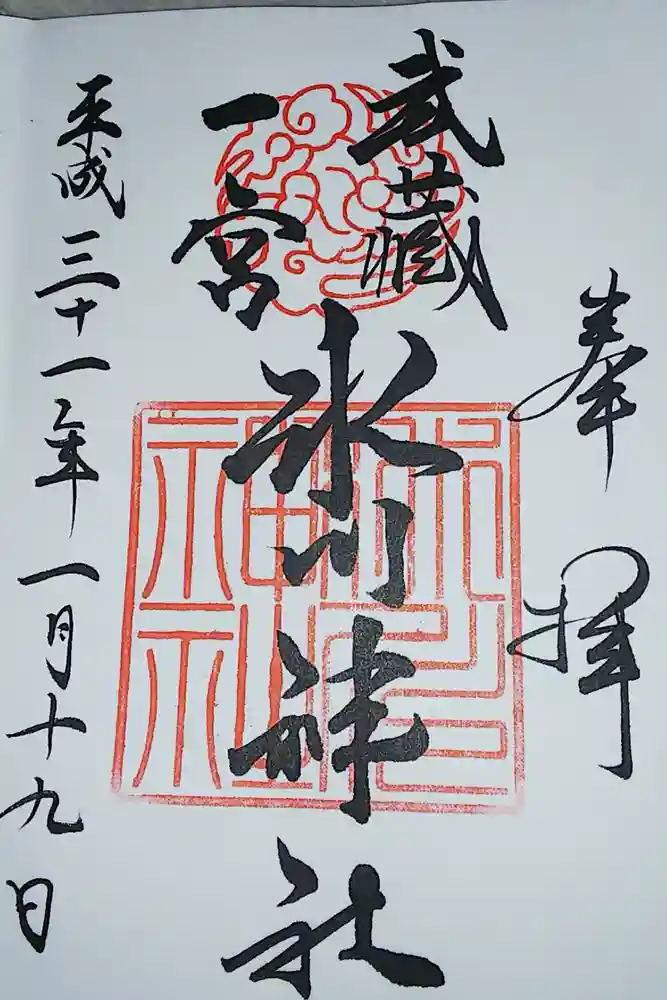 奉拝
武蔵
一宮
氷川神社
平成三十一年一月十九日